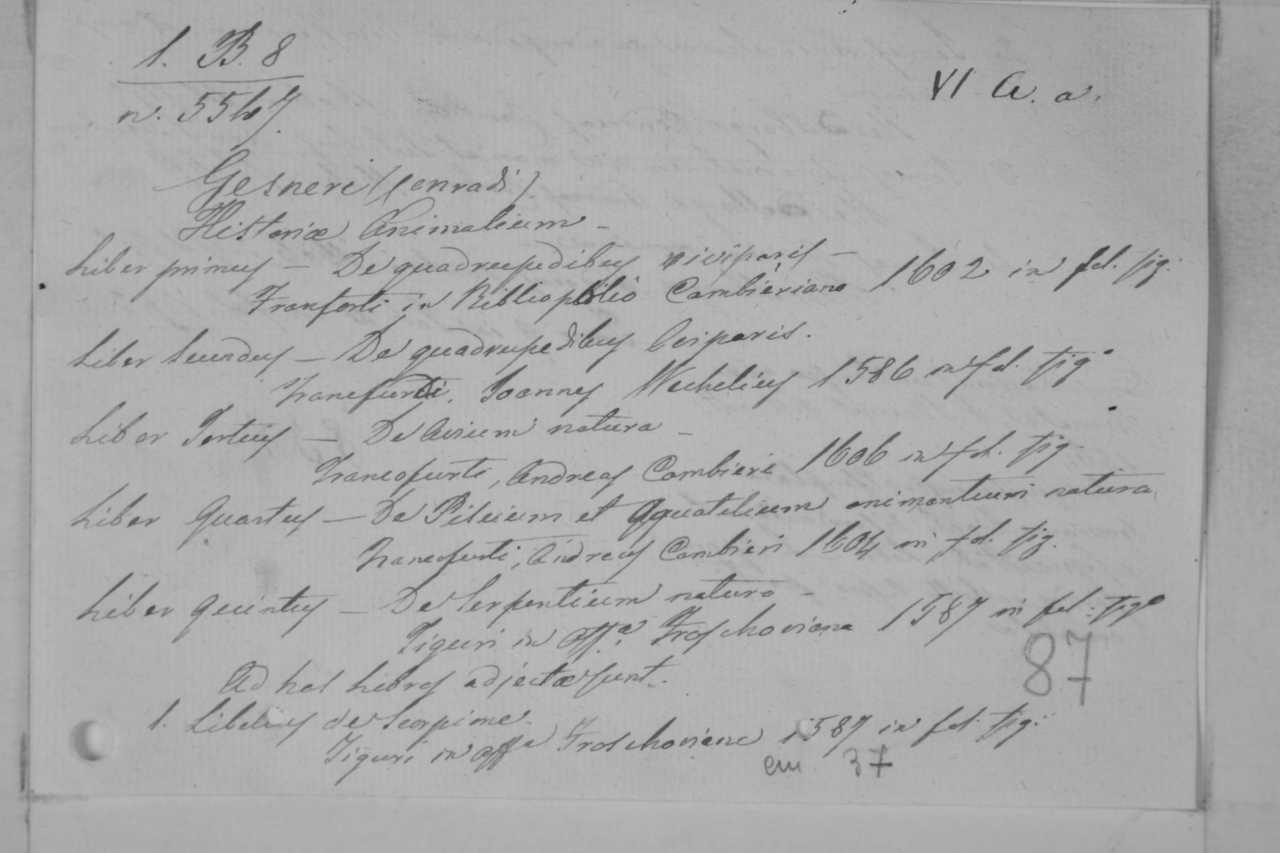 1. B. 8
VI A. a.
n. 5567
Gesneri (Conradi)
Historiæ Animalium -
Liber primus - De quadrupedibus viviparis -
Francforti in Bibliopolio Cambieriano 1602 in fol. fig.
Liber Secundus - De quadrupedibus Oviparis.
Francfurti, Joannes Wechelius 1586 in fol. fig.
Liber Tertius - De Avium natura -
Francofurti, Andreas Cambieri 1606 in fol. fig.
Liber Quartus - De Piscium et Aquatilium animantium natura
Francfurti, Andreas Cambieri 1604 in fol. fig.
Liber Quintus - De Serpentium natura -
Tiguri in off.ª Froschoviana 1587 in fol. fig.
87
Ad hos Libros adjectæ sunt.
1. Libellus de Scorpione.
Tiguri in offª Froschoviana 1587 in fol. fig.
cm 37